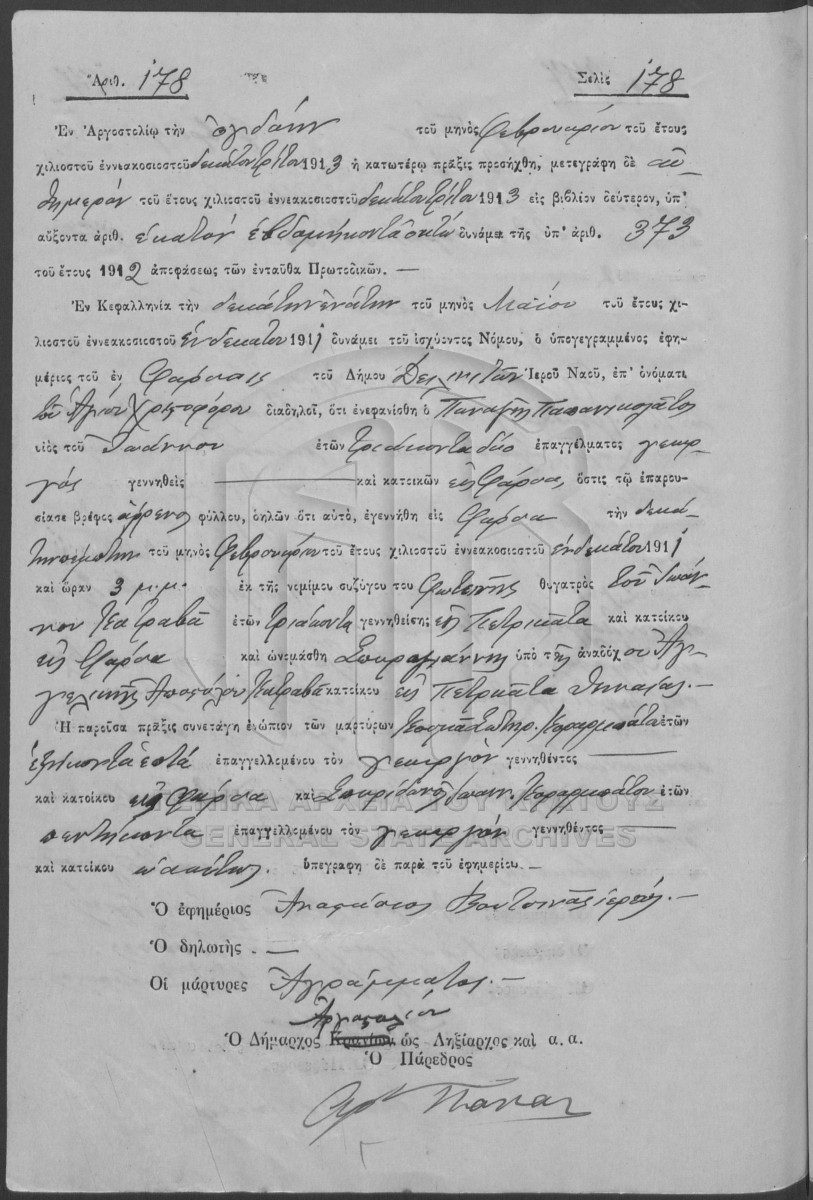 Ἀριθ. 178 Σελὶς 178
Ἐν Ἀργοστολίῳ τὴν ὀγδόην τοῦ μηνὸς Φεβρουαρίου τοῦ ἔτους
χιλιοστοῦ ἐννεακοσιοστοῦ δεκάτου τρίτου 1913 ἡ κατωτέρω πρᾶξις προσήχθη, μετεγράφη δὲ αὐ-
θημερὸν τοῦ ἔτους χιλιοστοῦ ἐννεακοσιοστοῦ δεκάτου τρίτου 1913 εἰς βιβλίον δεύτερον, ὑπ'
αὔξοντα ἀριθ. ἑκατὸν ἑβδομήκοντα ὀκτὼ δυνάμει τῆς ὑπ' ἀριθ. 373
τοῦ ἔτους 1912 ἀποφάσεως τῶν ἐνταῦθα Πρωτοδικῶν. —
Ἐν Κεφαλληνίᾳ τὴν δεκάτην ἐνάτην τοῦ μηνὸς Μαΐου τοῦ ἔτους χι-
λιοστοῦ ἐννεακοσιοστοῦ ἑνδεκάτου 1911 δυνάμει τοῦ ἰσχύοντος Νόμου, ὁ ὑπογεγραμμένος ἐφη-
μέριος τοῦ ἐν Φαρσοις τοῦ Δήμου Ἱεροῦ Ναοῦ, ἐπ' ὀνόματι
τοῦ Ἁγίου Χριστοφόρου διαδηλοῖ, ὅτι ἐνεφανίσθη ὁ Παναγῆς Παπανικολάτος
υἱὸς τοῦ Ἰωάννου ἐτῶν τριάκοντα δύο ἐπαγγέλματος γεωρ-
γὸς γεννηθεὶς — καὶ κατοικῶν εἰς Φάρσα, ὅστις τῷ ἐπαρου-
σίασε βρέφος ἄρρενος φύλλου, δηλῶν ὅτι αὐτὸ, ἐγεννήθη εἰς Φάρσα τὴν δεκά-
την πέμπτην τοῦ μηνὸς Φεβρουαρίου τοῦ ἔτους χιλιοστοῦ ἐννεακοσιοστοῦ ἑνδεκάτου 1911
καὶ ὥραν 3 μ.μ. ἐκ τῆς νομίμου συζύγου του Φωτεινῆς θυγατρὸς τοῦ Ἰωάν-
νου Κατραβᾶ ἐτῶν τριάκοντα γεννηθείσης εἰς Πετρικᾶτα καὶ κατοίκου
εἰς Φάρσα καὶ ὠνομάσθη Σπυρογιάννης ὑπὸ τῆς ἀναδόχου Ἀγ-
γελικῆς Ἀποστόλου Κατραβᾶ κατοίκου εἰς Πετρικᾶτα Θηναίας. —
Ἡ παροῦσα πρᾶξις συνετάγη ἐνώπιον τῶν μαρτύρων Κοσμᾶ Σωτηρ. ἐτῶν
ἑξήκοντα ἑπτά ἐπαγγελλομένου τὸν γεωργὸν γεννηθέντος —
καὶ κατοίκου εἰς Φάρσα καὶ Σπυρίδωνος Ἰωάνν. ἐτῶν
πεντήκοντα ἐπαγγελλομένου τὸν γεωργόν γεννηθέντος —
καὶ κατοίκου ὡσαύτως. ὑπεγράφη δὲ παρὰ τοῦ ἐφημερίου. —
ΓΕΝΙΚΑ ΑΡΧΕΙΑ ΤΟΥ ΚΡΑΤΟΥΣ
GENERAL STATE ARCHIVES
Ὁ ἐφημέριος Ἀθανάσιος Βουτσινᾶς ἱερεύς. —
Ὁ δηλωτὴς —
Οἱ μάρτυρες Ἀγράμματοι. —
Ἀργοστολίων
Ὁ Δήμαρχος Κρανίων ὡς Ληξίαρχος καὶ α. α.
Ὁ Πάρεδρος